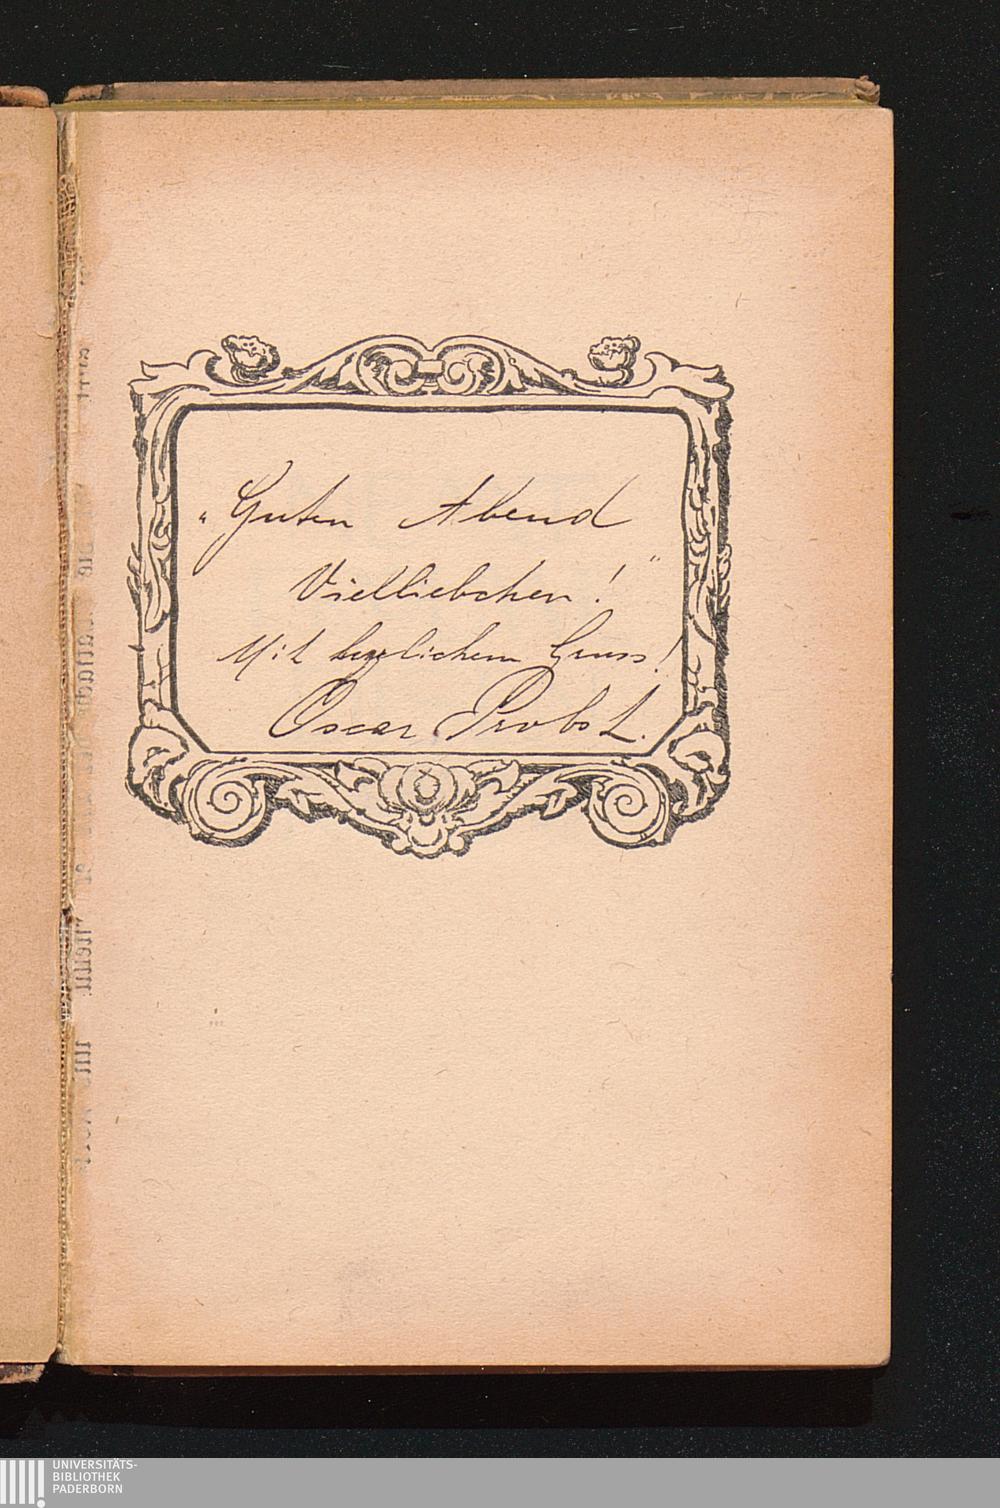 „Guten Abend
Vielliebchen!"
Mit herzlichem Gruss!
Oscar Probst.
UNIVERSITÄTS-
BIBLIOTHEK
PADERBORN